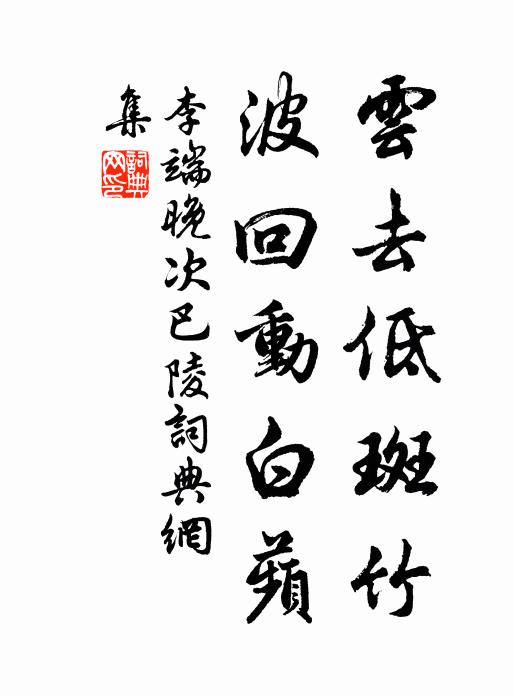 雲去低斑竹
波回動白蘋
李端晚次巴陵詞典網
集
詞典
网印